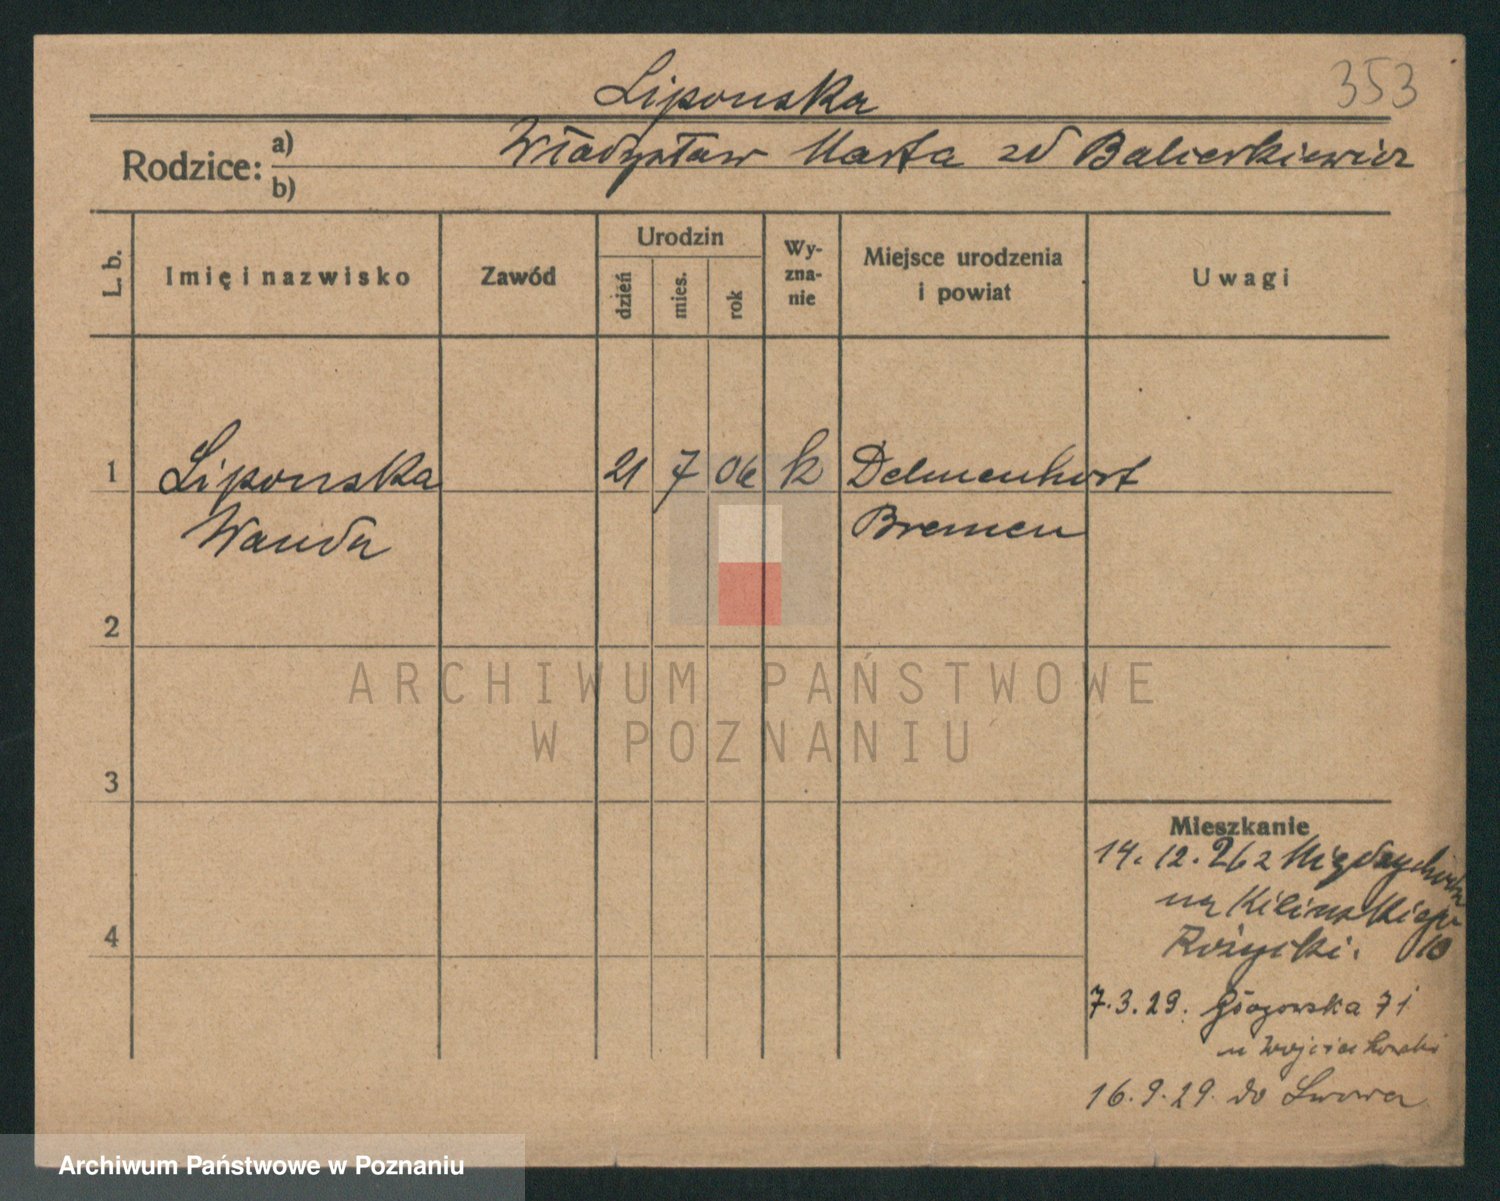 353
Liponska
Rodzice: a) Władysław Marta zd Balcerkiewicz
b)
L. b.
Imię i nazwisko
Zawód
Urodzin
dzień
mies.
rok
Wy-
zna-
nie
Miejsce urodzenia
i powiat
Uwagi
1 Liponska 21 7 06 k Delmenhorst
Wanda Bremen
2
3
4
Mieszkanie
14.12.26 z Międzychodu
na Kilinskiego
Różycki. 10
7.3.29. Głogowska 71
u Wojciechowski
16.9.29. do Lwowa
ARCHIWUM PAŃSTWOWE
W POZNANIU
Archiwum Państwowe w Poznaniu